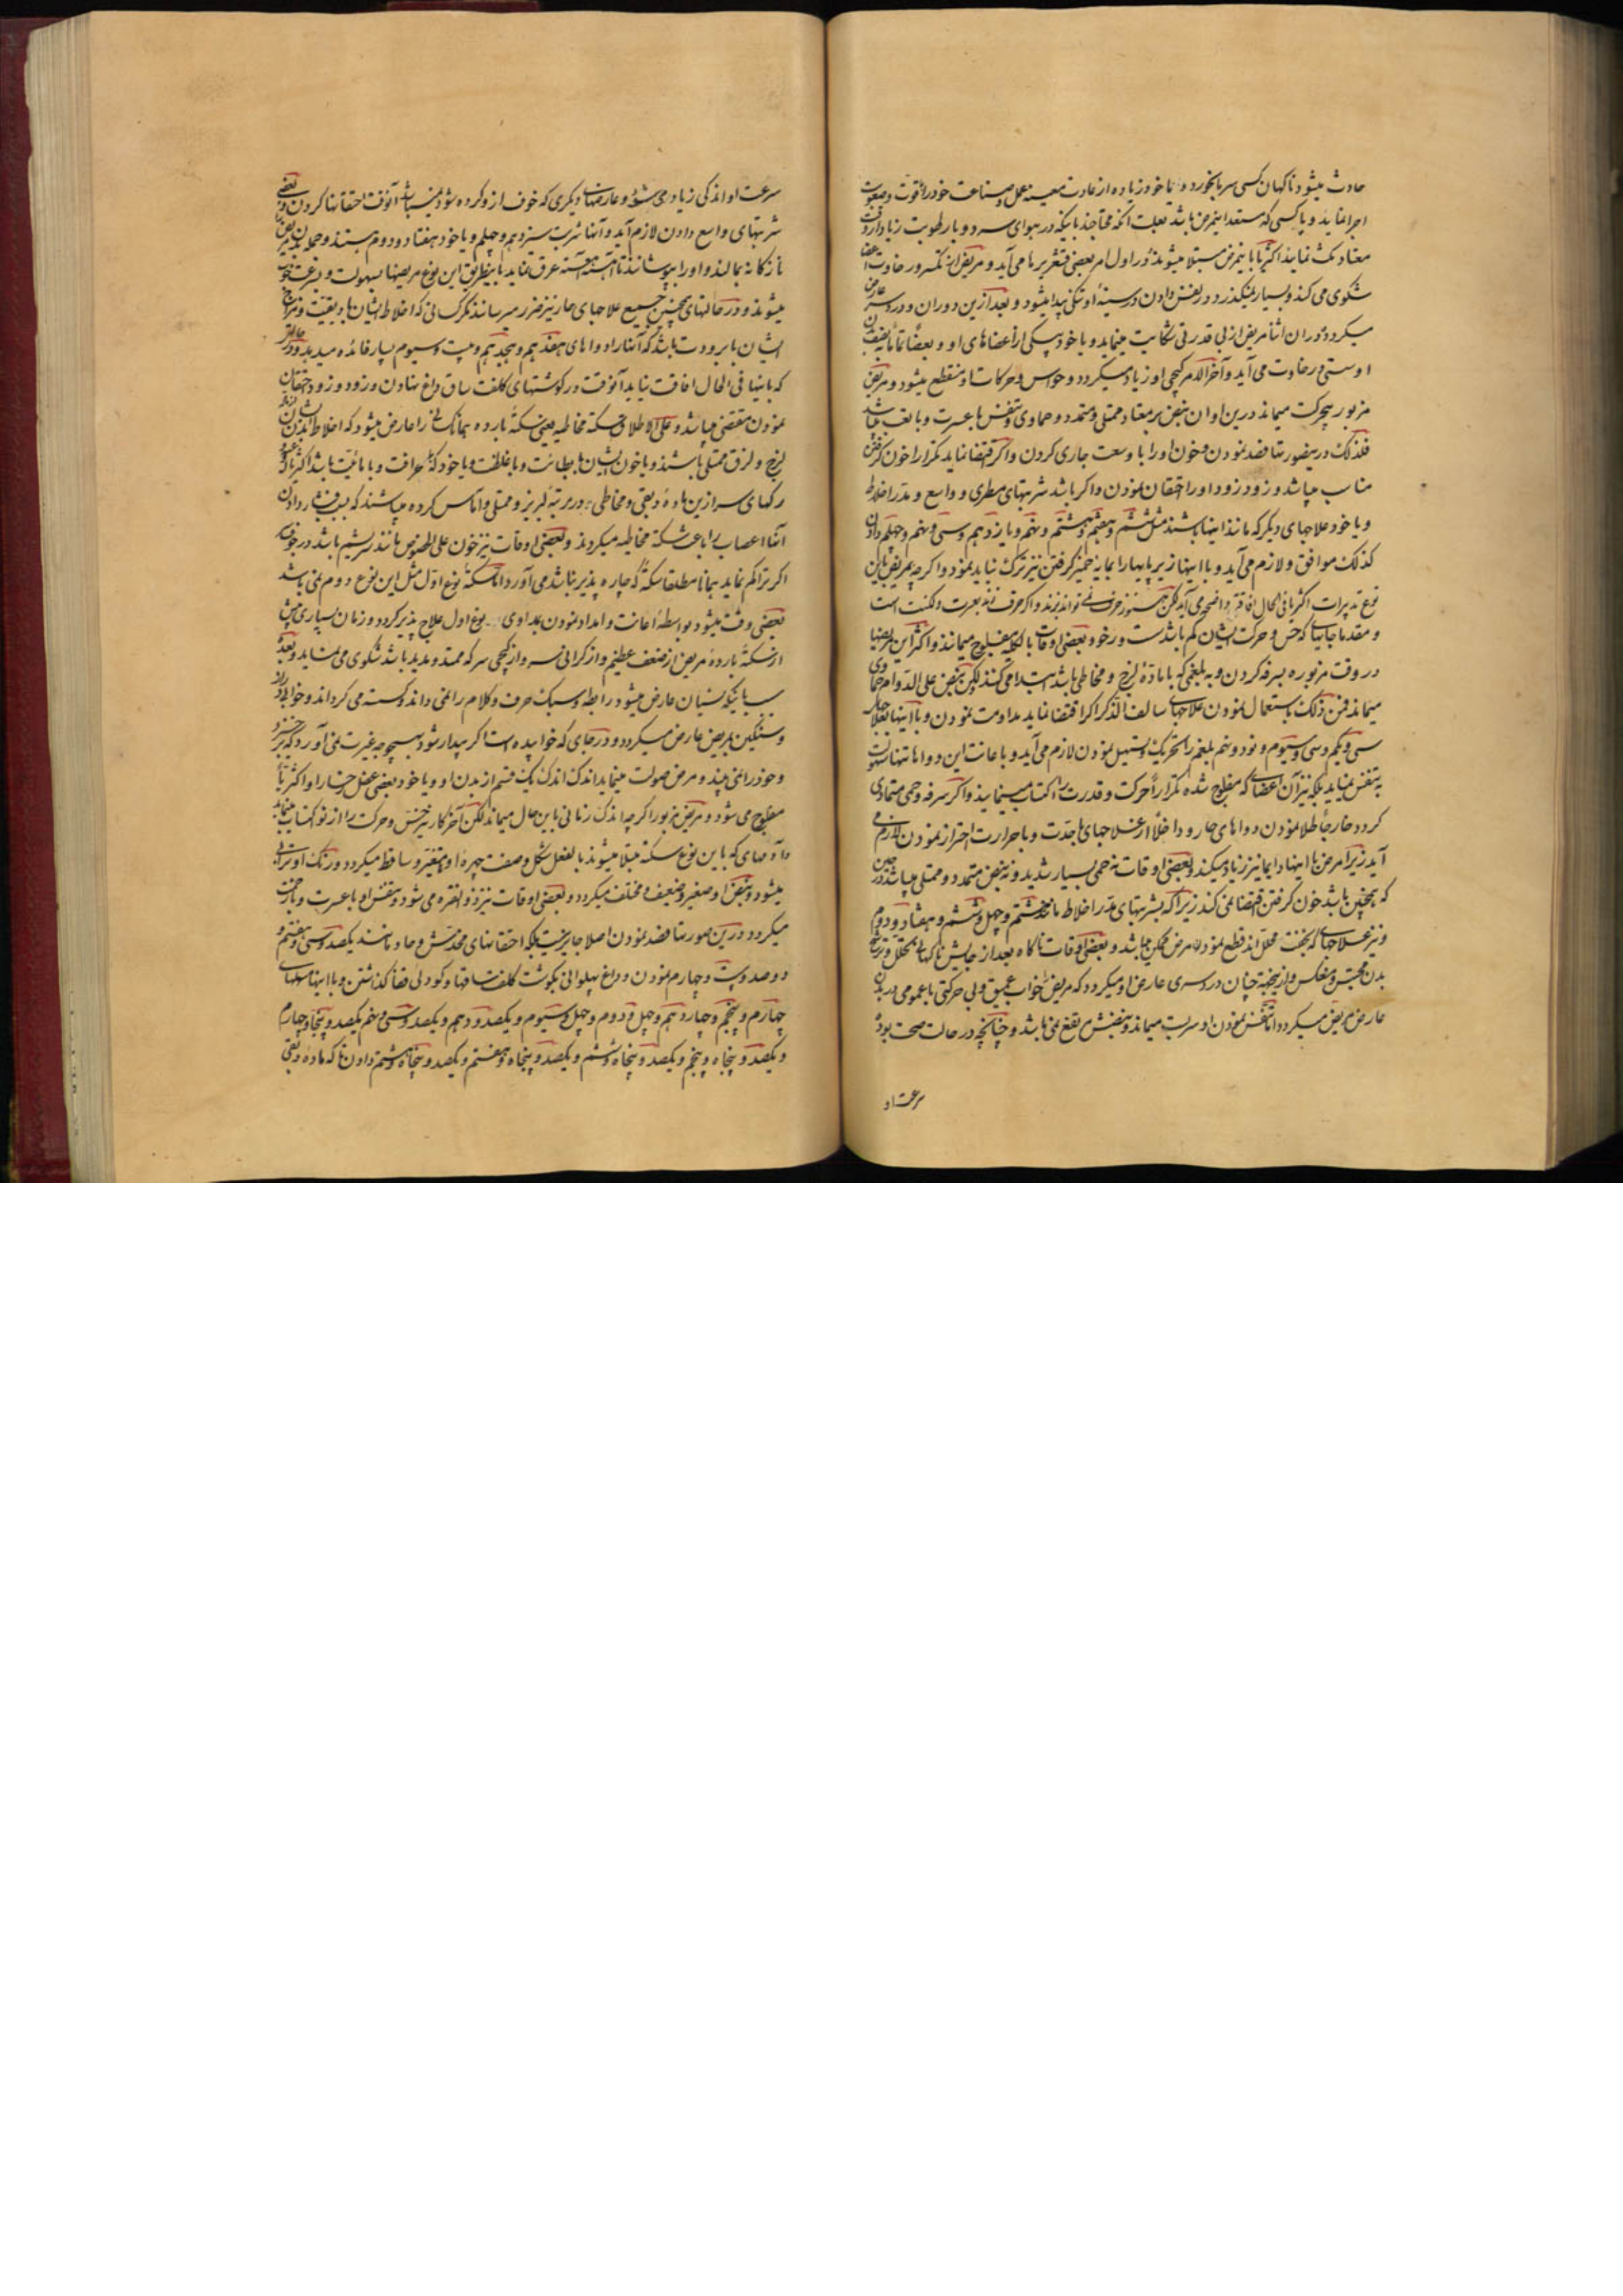 حادث میشود ناگهان کسی سر بخورد و یا خود زیاده از عادت معینه عمل و صناعت خود را بقوت وصعوبت
اجرا نماید و یا کسی که مستعد اینمرض باشد بعلت آنکه محتاجند باینکه در هوای سرد و با رطوبت زیاد از وقت
معتاد مکث نمایند اکثریا باینمرض مبتلا میشوند در اول امر بعضی قشعریرها می آید و مریض از تکسر و رخاوت اعضا
شکوی می کند و بسیار نمیگذرد در نفس دادن در سینهٔ او تنگی پیدا میشود و بعد ازین دوران و درد سر عارض
میگردد در ان اثنا مریض از بی قدرتی شکایت مینماید و یا خود یکی از اعضاهای او و بعضا تمامًا نصف بدن
او سستی و رخاوت می آید و آخر الامر گیجی او زیاد میگردد و حواس و حرکات او منقطع میشود و مریض
مزبور بیحرکت میماند درین اوان نبض بر معتاد ممتلی و متمدد و حماوی و تنفس با عسرت و با تعب میباشد
فلذلک درینصورتها فصد نمودن و خون او را با وسعت جاری کردن و اگر اقتضا نماید تکرارا خون گرفتن
مناسب میباشد و زود زود او را احتقان نمودن و اگر باشد شربتهای مطری و واسع و مدر اخلاط
و یا خود علاجهای دیگر که مانند اینها باشند مثل ششم و هفتم و هشتم و نهم و یازدهم و سی و نهم و چهلم دادن
کذلک موافق و لازم می آید و با اینها زیر پایها را بمایهٔ خمیر گرفتن نیز ترک نباید نمود و اگرچه بمریض باین
نوع تدبیرات اکثریا فی الحال افاقه و انصحه می آید لکن هنوز حرف نمی تواند بزند و اگر حرف زند بعسرت و لکنت است
و مقدما جایهائی که حس و حرکت ایشان کم باشد سست و رخو و بعضی اوقات بالکلیه مفلوج میمانند و اکثر این مریضها
در وقت مزبوره بسرفه کردن و به بلغمی که با مادهٔ لزج و مخاطی باشد ابتدا می کنند لکن نبض علی الدوام حماوی
میماند فمن ذلک باستعمال نمودن علاجهای سالف الذکر اگر اقتضا نماید مداومت نمودن و با اینها بعلاجهای
سی و یکم و سی و سیوم و نود و نهم بلغم را تحریک و تسهیل نمودن لازم می آید و با عانت این دواها نه تنها سهولت
به تنفس مینماید بلکه نیز آن اعضائی که مفلوج شده تکرارا حرکت و قدرت را اکتساب مینمایند و اگر سرفه و حمی متمادی
گردد خارجًا طلا نمودن دواهای حار و داخلًا از علاجهای باحدت و با حرارت احتراز نمودن لازم می
آید زیرا مرض با اینها دایما نیز زیاد میکند و بعضی اوقات نه حمی بسیار شدید و نه نبض متمدد و ممتلی میباشد در حین
که همچنین باشد خون گرفتن اقتضا نمی کند زیرا که بشربتهای مدر اخلاط مانند هشتم و چهل و ششم و هفتاد و دوم
و نیز علاجهائی که بخفت محلل اند قطع نمودن مرض ممکن میباشد و بعضی اوقات ناگاه بعد از جایش ناگهانی تحلل و ترشح
بدن محتبس و منعکس و از نیجهة چنان درد سری عارض او میگردد که مریض را خواب عمیق و بی حرکتی با عمومی در بدن
عارض مریض میگردد اما تنفس نمودن او سربست میماند و نبضش مرتفع نمی باشد و چنانچه در حالت صحت بود
سرعت او
سرعت او اندکی زیاد می شود و عارضهای دیگری که خوف از و کرده شود نمیباشد آنوقت احتقانها کردن و بعضی
شربتهای واسع دادن لازم آید و آنها شربت سیزدهم و چهلم و یا خود هفتاد و دوم هستند و جمله بدن مریض
نازکانه بمالند و او را بپوشانند تا آهسته آهسته عرق نماید باینطریق این نوع مریضها بسهولت و بسرعت خوب
میشوند و در حالتهای همچنین جمیع علاجهای حار نیز ضرر میرسانند مگر کسانی که اخلاط ایشان با دبقیت و مزاج
ایشان با برودت باشد که آنها را دواهای هفدهم و هجدهم و بیست و سیوم بسیار فائده میدهد و در حالتی
که باینها فی الحال افاقت نیاید آنوقت در گوشتهای کلفت ساق داغ نهادن و زود و زود احتقان
نمودن مقتضی میباشد و علی الاطلاق سکته مخاطیه یعنی سکتهٔ بارده همانا کسانی را عارض میشود که اخلاط بدن ایشان
لزج و لزق ممتلی باشند و یا خون ایشان با بطائت و با غلظت و یا خود که با حرافت و با مائیت باشد اکثریا که
رگهای سر ازین مادهٔ دبقی و مخاطی در مرتبهٔ لبریز و ممتلی و آماس کرده میباشند که بسبب فشار دادن
آنها اعصاب را باعث سکتهٔ مخاطیه میگردند و بعضی اوقات نیز خون علی الخصوص مانند سریشم باشد در جوف
اگر تراکم نماید همانا مطلقا سکتهٔ که چاره پذیر نباشد می آورد اما سکتهٔ نوع اول مثل این نوع دوم نمی باشد
بعضی وقت میشود بواسطهٔ اعانت و امداد نمودن بمداوی نوع اول علاج پذیر گردد و زمان بسیاری پیش
از سکتهٔ بارده مریض از ضعف عظیم و از گرانی سر و از گیجی سر که ممتد و مدید باشد شکوی می نماید و بعده
بسبب اینکه نسیان عارض میشود رابطه و سبک حرف و کلام را نمی داند گسسته می گرداند و خواب دراز
و سنگین بمریض عارض میگردد و در جای که خوابیده است اگر بیدار شود بهیچوجه غیرت نمی آورد که برخیزد
و خود را نمی بیند و مرض صولت مینماید اندک اندک یک قسم از بدن او و یا خود بعضی عضل رخسار او اکثریا
مفلوج می شود و مریض مزبور اگرچه اندک زمانی باین حال میماند لکن آخر کار نیز حس و حرکت را از نو اکتساب مینماید
و آدمهای که باین نوع سکته مبتلا میشوند بالفعل شکل و صفت چهرهٔ او متغیر و ساقط میگردد و رنگ او ترابی
میشود و نبض او صغیر و ضعیف و مختلف میگردد و بعضی اوقات نیز ذو الفتره می شود و تنفس او با عسرت و با خرخره
میگردد درین صورتها فصد نمودن اصلا جایز نیست بلکه احتقانهای مخدش و حاد مانند یکصد و سی و هفتم و
دوصد و بیست و چهارم نمودن و داغ پهلوانی بگوشت کلفت ساقها و گودلی قفا گذاشتن و با اینها مسهلهای
چهارم و پنجم و چهاردهم و چهل و دوم و چهل و سیوم و یکصد و دهم و یکصد و سی و نهم و یکصد و پنجاه و چهارم
و یکصد و پنجاه و پنجم و یکصد و پنجاه و ششم و یکصد و پنجاه و هفتم و یکصد و پنجاه و هشتم دادن تا که مادهٔ دبقی